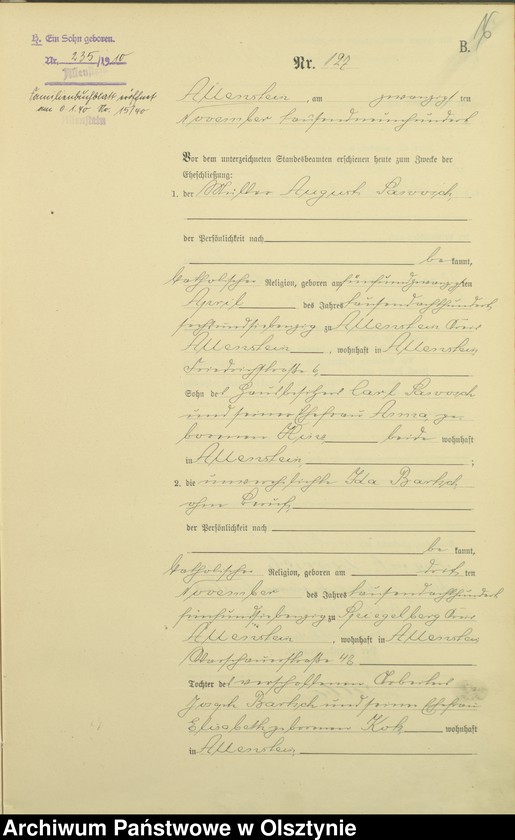 H. Ein Sohn geboren.
Nr. 235/1910
Allenstein
Familienbuchblatt eröffnet
am 6.1.40 Nr. 15/40
Allenstein
B.
Nr. 192
Allenstein, am zwanzigsten
November tausendneunhundert
Vor dem unterzeichneten Standesbeamten erschienen heute zum Zwecke der
Eheschließung:
1. der Müller August
der Persönlichkeit nach
be kannt,
katholischer Religion, geboren am fünfundzwanzigsten
April des Jahres tausendachthundert
sechsundsiebenzig zu Allenstein Kreis
Allenstein, wohnhaft in Allenstein
Friedrichstraße 6,
Sohn des Hausbesitzers Carl
und seiner Ehefrau Anna, ge-
borenen beide wohnhaft
in Allenstein ;
2. die unverehelichte Ida Bartsch,
ohne Beruf,
der Persönlichkeit nach
be kannt,
katholischer Religion, geboren am dritten
November des Jahres tausendachthundert
fünfundsiebenzig zu Spiegelberg Kreis
Allenstein, wohnhaft in Allenstein
Warschauerstraße 48,
Tochter des verschollenen Arbeiters
Joseph Bartsch und seiner Ehefrau
Elisabeth geborenen Kok wohnhaft
in Allenstein
Archiwum Państwowe w Olsztynie